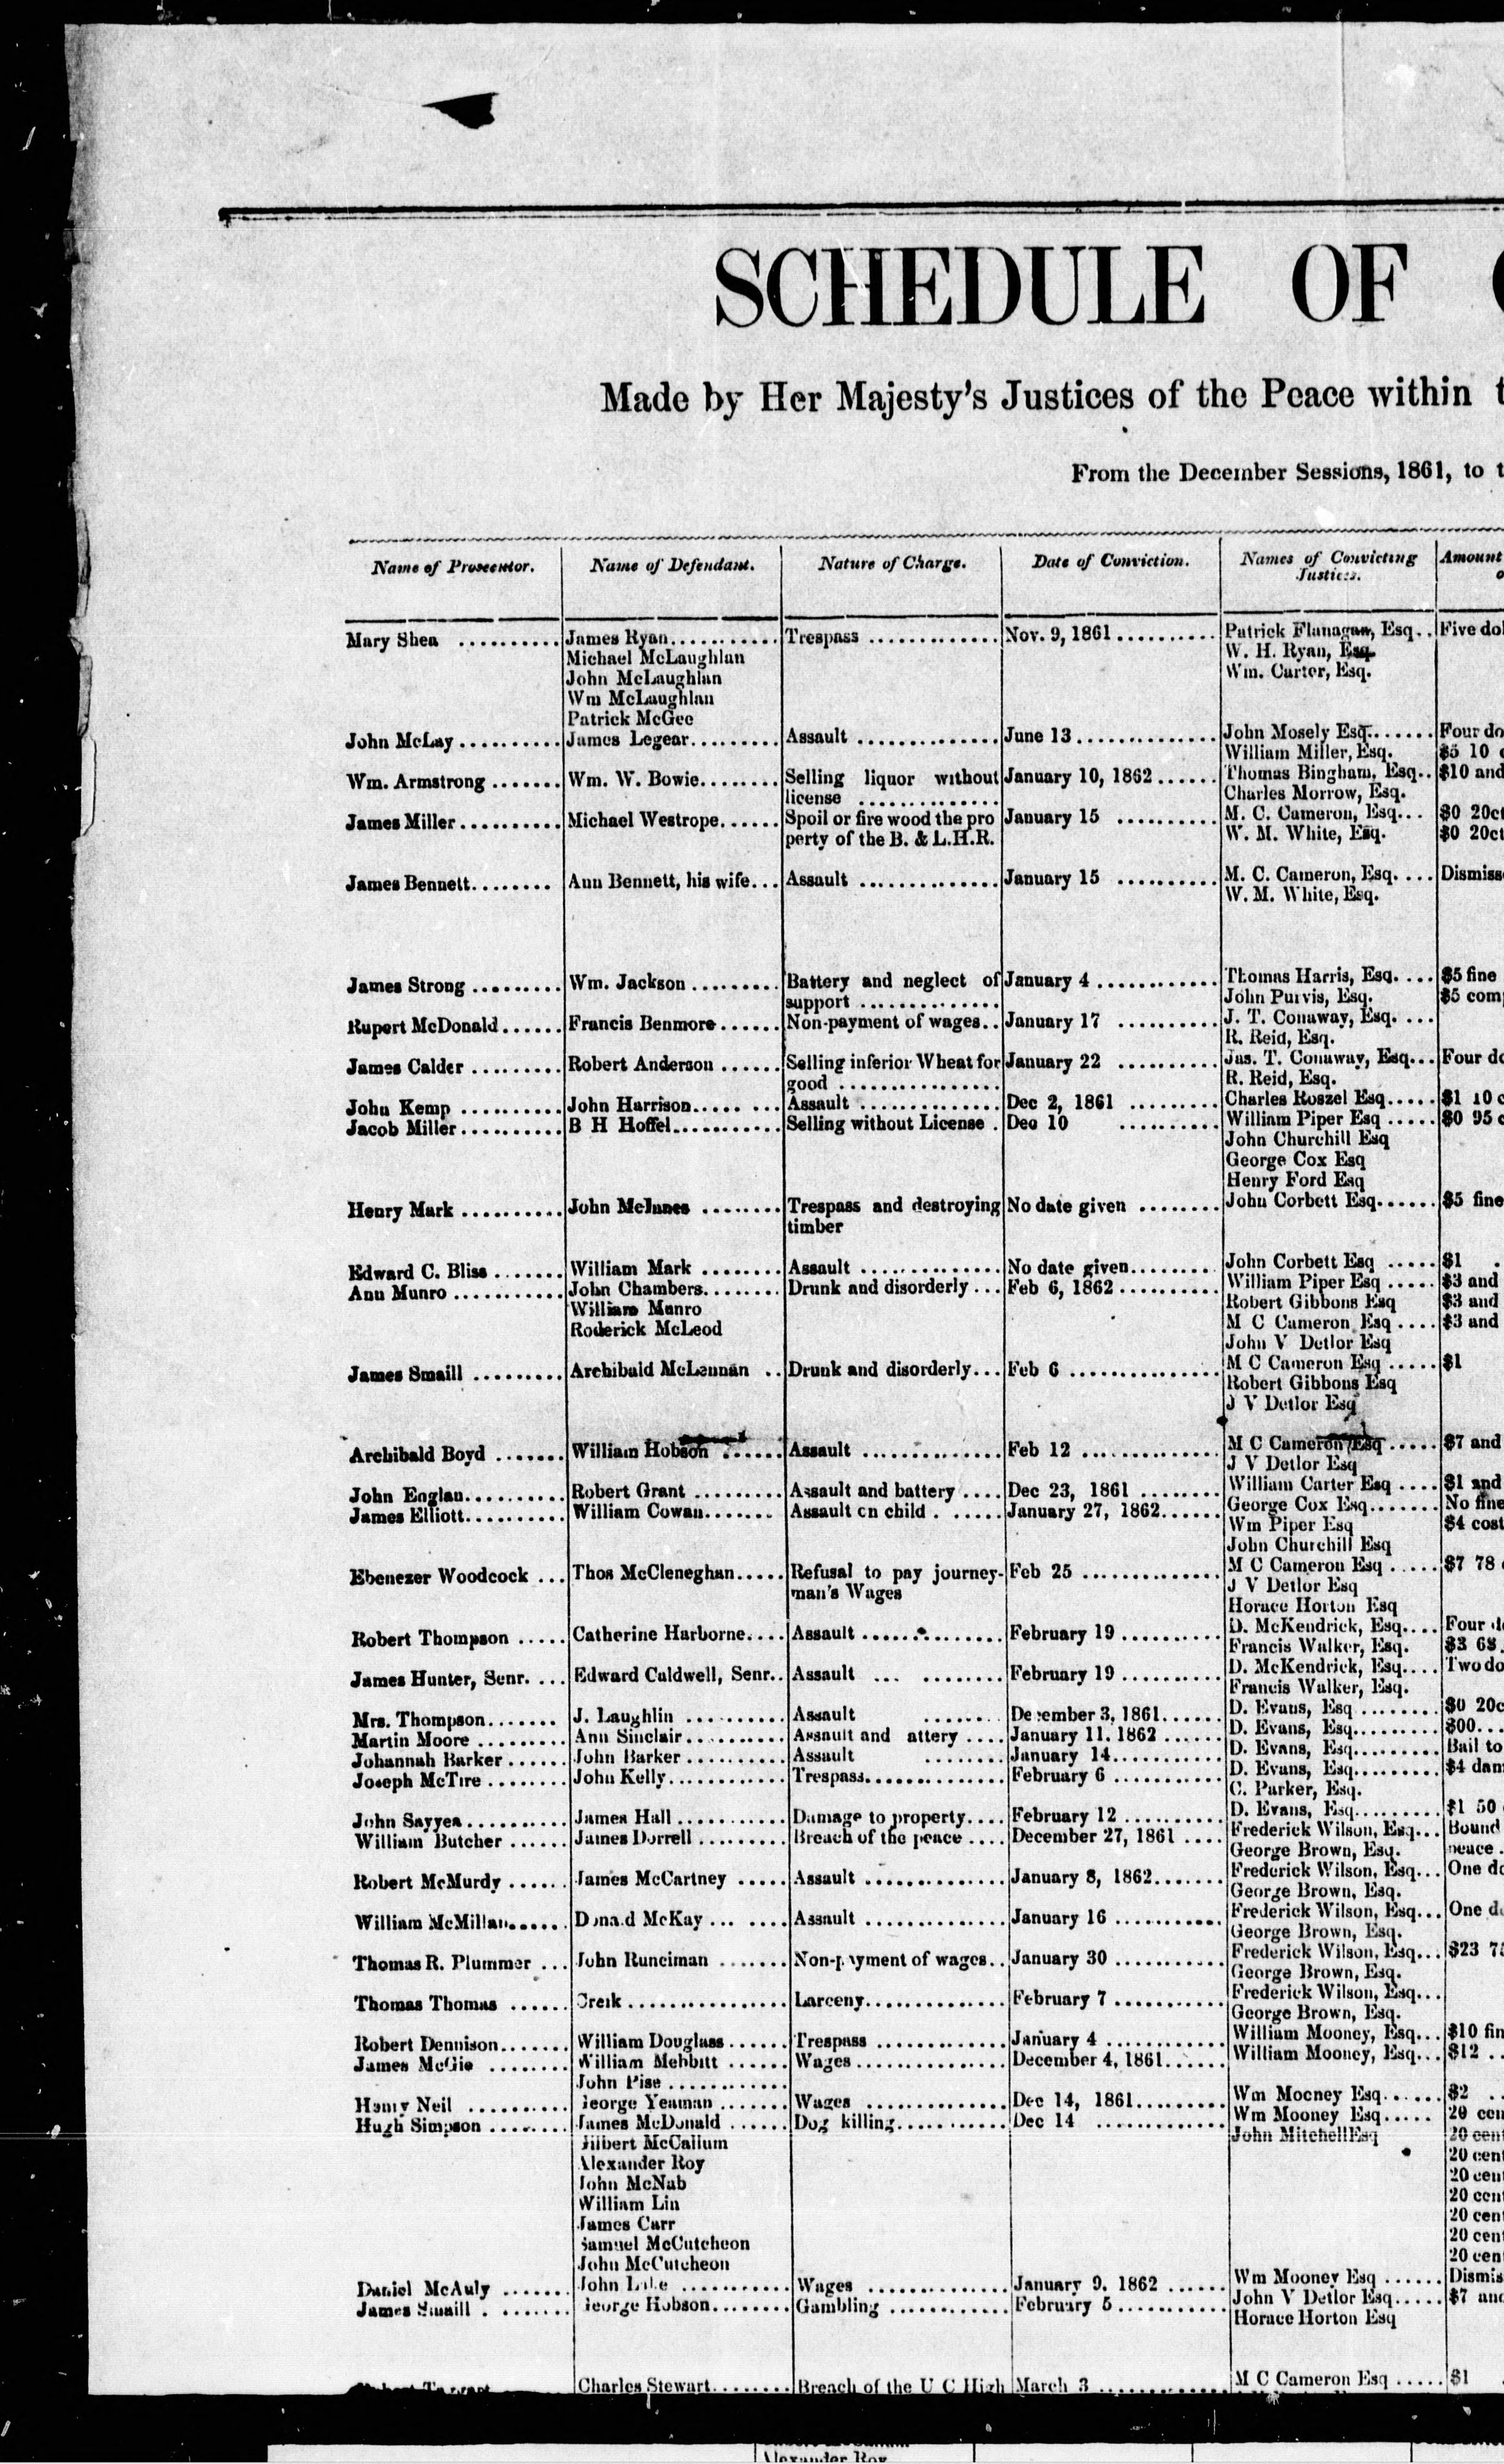 SCHEDULE OF
Made by Her Majesty's Justices of the Peace within
From the December Sessions, 1861, to
Name of Prosecutor. Name of Defendant. Nature of Charge. Date of Conviction. Names of Convicting Amount
Justices.
Mary Shea .......... James Ryan........... Trespass ............. Nov. 9, 1861.......... Patrick Flanagan, Esq.. Five dol
Michael McLaughlan W. H. Ryan, Esq.
John McLaughlan Wm. Carter, Esq.
Wm McLaughlan
Patrick McGee
John McLay.......... James Legear......... Assault .............. June 13.............. John Mosely Esq....... Four do
William Miller, Esq. $5 10 c
Wm. Armstrong ....... Wm. W. Bowie........ Selling liquor without January 10, 1862 ...... Thomas Bingham, Esq.. $10 and
license .............. Charles Morrow, Esq.
James Miller.......... Michael Westrope...... Spoil or fire wood the pro January 15 .......... M. C. Cameron, Esq... $0 20ct
perty of the B. & L.H.R. W. M. White, Esq. $0 20ct
James Bennett........ Ann Bennett, his wife... Assault .............. January 15 .......... M. C. Cameron, Esq. ... Dismiss
W. M. White, Esq.
James Strong ......... Wm. Jackson ......... Battery and neglect of January 4 ............ Thomas Harris, Esq. ... $5 fine
support .............. John Purvis, Esq. $5 com
Rupert McDonald...... Francis Benmore...... Non-payment of wages.. January 17 .......... J. T. Conaway, Esq. ...
R. Reid, Esq.
James Calder ......... Robert Anderson ...... Selling inferior Wheat for January 22 .......... Jas. T. Conaway, Esq... Four do
good ................ R. Reid, Esq.
John Kemp .......... John Harrison..... ... Assault .............. Dec 2, 1861 ......... Charles Roszel Esq..... $1 10 c
Jacob Miller.......... B H Hoffel........... Selling without License . Dec 10 .......... William Piper Esq ..... $0 95 c
John Churchill Esq
George Cox Esq
Henry Ford Esq
Henry Mark .......... John McInnes ........ Trespass and destroying No date given ........ John Corbett Esq...... $5 fine
timber
Edward C. Bliss ....... William Mark ........ Assault .............. No date given........ John Corbett Esq ..... $1 .
Ann Munro ........... John Chambers........ Drunk and disorderly ... Feb 6, 1862.......... William Piper Esq ..... $3 and
William Munro Robert Gibbons Esq $3 and
Roderick McLeod M C Cameron Esq .... $3 and
John V Detlor Esq
James Smaill ......... Archibald McLennan .. Drunk and disorderly... Feb 6 ............... M C Cameron Esq ..... $1
Robert Gibbons Esq
J V Detlor Esq
Archibald Boyd ....... William Hobson ...... Assault .............. Feb 12 .............. M C Cameron Esq ..... $7 and
J V Detlor Esq
John Englan.......... Robert Grant ......... Assault and battery .... Dec 23, 1861 ........ William Carter Esq .... $1 and
James Elliott.......... William Cowan....... Assault on child . ..... January 27, 1862...... George Cox Esq....... No fine
Wm Piper Esq $4 cost
John Churchill Esq
Ebenezer Woodcock ... Thos McCleneghan..... Refusal to pay journey- Feb 25 .............. M C Cameron Esq ..... $7 78
man's Wages J V Detlor Esq
Horace Horton Esq
Robert Thompson ..... Catherine Harborne.... Assault .............. February 19 .......... D. McKendrick, Esq.... Four
Francis Walker, Esq. $3 68.
James Hunter, Senr. ... Edward Caldwell, Senr.. Assault ... ........ February 19 .......... D. McKendrick, Esq.... Two do
Francis Walker, Esq.
Mrs. Thompson....... J. Laughlin .......... Assault ........ December 3, 1861...... D. Evans, Esq ........ $0 20c
Martin Moore ......... Ann Sinclair.......... Assault and attery .... January 11. 1862 ...... D. Evans, Esq......... $00...
Johannah Barker ...... John Barker .......... Assault ........ January 14........... D. Evans, Esq......... Bail to
Joseph McTire ........ John Kelly............ Trespass.............. February 6 ........... D. Evans, Esq......... $4 dam
C. Parker, Esq.
John Sayyea.......... James Hall ........... Damage to property.... February 12 .......... D. Evans, Esq......... $1 50
William Butcher ...... James Dorrell ......... Breach of the peace .... December 27, 1861 .... Frederick Wilson, Esq... Bound
George Brown, Esq. peace .
Robert McMurdy ...... James McCartney ..... Assault .............. January 8, 1862....... Frederick Wilson, Esq... One do
George Brown, Esq.
William McMillan...... Donald McKay ... .... Assault .............. January 16 ........... Frederick Wilson, Esq... One d
George Brown, Esq.
Thomas R. Plummer ... John Runciman ....... Non-payment of wages.. January 30 ........... Frederick Wilson, Esq... $23 75
George Brown, Esq.
Thomas Thomas ...... Creik ................ Larceny.............. February 7 ........... Frederick Wilson, Esq...
George Brown, Esq.
Robert Dennison....... William Douglass ...... Trespass ............. January 4 ............ William Mooney, Esq... $10 fin
James McGie ........ William Mehbitt ...... Wages............... December 4, 1861...... William Mooney, Esq... $12 ..
John Pise ............
Henry Neil .......... George Yeaman ....... Wages .............. Dec 14, 1861......... Wm Mooney Esq...... $2 ..
Hugh Simpson ........ James McDonald ...... Dog killing........... Dec 14 ............. Wm Mooney Esq..... 20 cen
Gilbert McCallum John Mitchell Esq 20 cent
Alexander Roy 20 cent
John McNab 20 cent
William Lin 20 cent
James Carr 20 cent
Samuel McCutcheon 20 cent
John McCutcheon 20 cen
Daniel McAuly ....... John ........... Wages .............. January 9. 1862 ...... Wm Mooney Esq ...... Dismis
James Smaill . ....... George Hobson........ Gambling ............ February 5 ........... John V Detlor Esq..... $7 and
Horace Horton Esq
Charles Stewart........ Breach of the U C High March 3 ............ M C Cameron Esq ..... $1
Alexander Roy